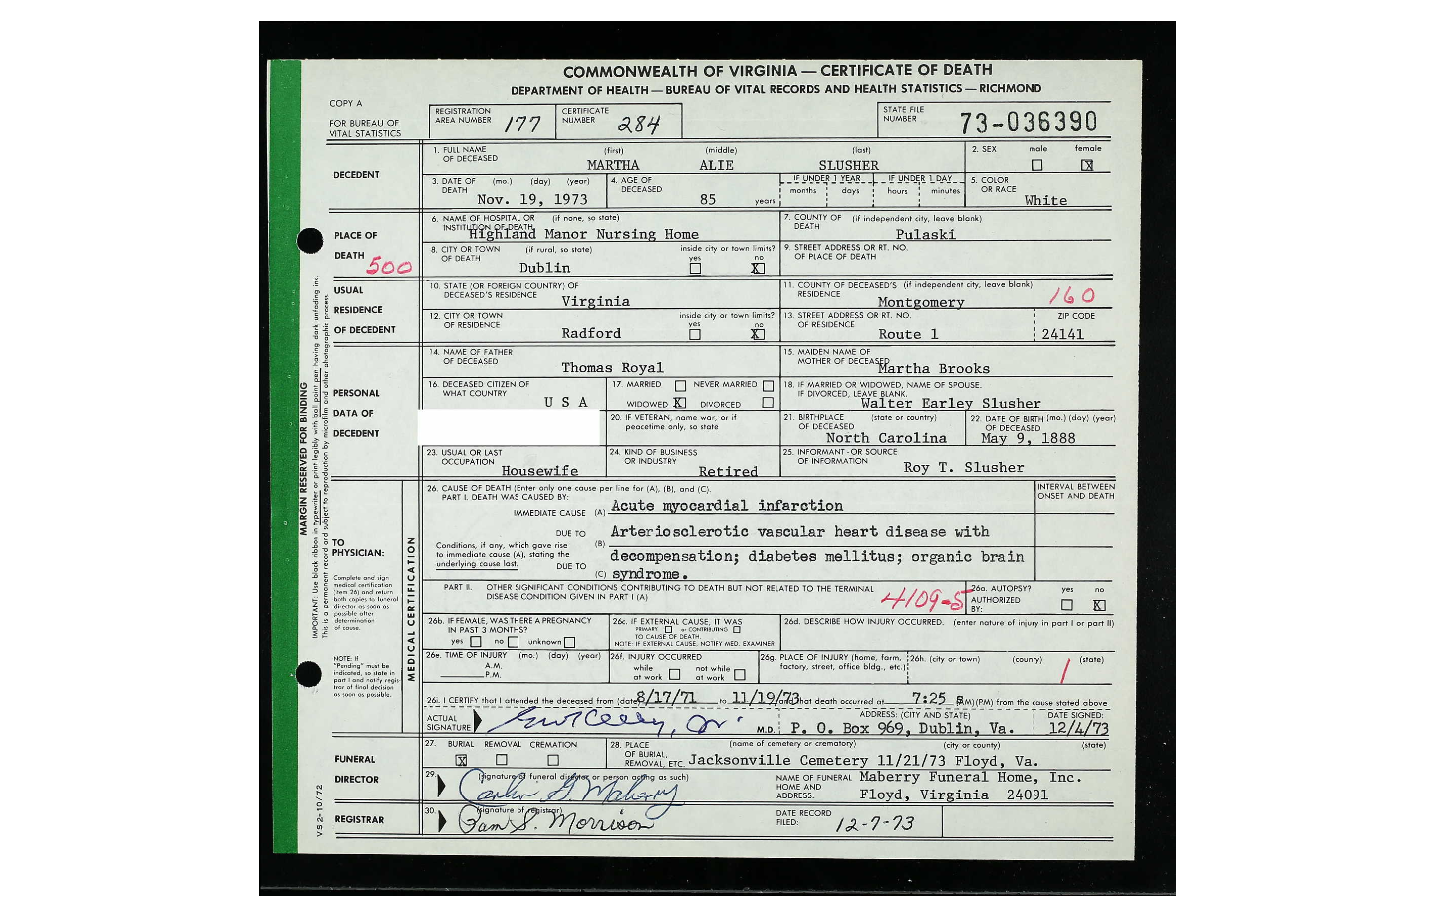 COMMONWEALTH OF VIRGINIA — CERTIFICATE OF DEATH
DEPARTMENT OF HEALTH — BUREAU OF VITAL RECORDS AND HEALTH STATISTICS — RICHMOND
COPY A
FOR BUREAU OF VITAL STATISTICS
REGISTRATION AREA NUMBER 177
CERTIFICATE NUMBER 284
STATE FILE NUMBER 73-036390
DECEDENT
1. FULL NAME OF DECEASED (first) (middle) (last)
MARTHA ALIE SLUSHER
2. SEX male female X
3. DATE OF DEATH (mo.) (day) (year)
Nov. 19, 1973
4. AGE OF DECEASED
85 years
IF UNDER 1 YEAR months days
IF UNDER 1 DAY hours minutes
5. COLOR OR RACE
White
PLACE OF DEATH 500
6. NAME OF HOSPITAL OR INSTITUTION OF DEATH (if none, so state)
Highland Manor Nursing Home
7. COUNTY OF DEATH (if independent city, leave blank)
Pulaski
8. CITY OR TOWN OF DEATH (if rural, so state)
Dublin
inside city or town limits? yes no X
9. STREET ADDRESS OR RT. NO. OF PLACE OF DEATH
USUAL RESIDENCE OF DECEDENT
10. STATE (OR FOREIGN COUNTRY) OF DECEASED'S RESIDENCE
Virginia
11. COUNTY OF DECEASED'S RESIDENCE (if independent city, leave blank)
Montgomery 160
12. CITY OR TOWN OF RESIDENCE
Radford
inside city or town limits? yes no X
13. STREET ADDRESS OR RT. NO. OF RESIDENCE
Route 1
ZIP CODE
24141
PERSONAL DATA OF DECEDENT
14. NAME OF FATHER OF DECEASED
Thomas Royal
15. MAIDEN NAME OF MOTHER OF DECEASED
Martha Brooks
16. DECEASED CITIZEN OF WHAT COUNTRY
U S A
17. MARRIED NEVER MARRIED
WIDOWED X DIVORCED
18. IF MARRIED OR WIDOWED, NAME OF SPOUSE. IF DIVORCED, LEAVE BLANK.
Walter Earley Slusher
20. IF VETERAN, name war, or if peacetime only, so state
21. BIRTHPLACE OF DECEASED (state or country)
North Carolina
22. DATE OF BIRTH OF DECEASED (mo.) (day) (year)
May 9, 1888
23. USUAL OR LAST OCCUPATION
Housewife
24. KIND OF BUSINESS OR INDUSTRY
Retired
25. INFORMANT - OR SOURCE OF INFORMATION
Roy T. Slusher
MARGIN RESERVED FOR BINDING
IMPORTANT: Use black ribbon in typewriter or print legibly with ball point pen having dark unfading ink.
This is a permanent record and subject to reproduction by microfilm and other photographic process.
TO PHYSICIAN:
Complete and sign medical certification (item 26) and return both copies to funeral director as soon as possible after determination of cause.
NOTE: If "Pending" must be indicated, so state in part I and notify registrar of final decision as soon as possible.
MEDICAL CERTIFICATION
26. CAUSE OF DEATH (Enter only one cause per line for (A), (B), and (C).
PART I. DEATH WAS CAUSED BY:
INTERVAL BETWEEN ONSET AND DEATH
IMMEDIATE CAUSE (A) Acute myocardial infarction
DUE TO (B) Arteriosclerotic vascular heart disease with
Conditions, if any, which gave rise to immediate cause (A), stating the underlying cause last.
decompensation; diabetes mellitus; organic brain
DUE TO (C) syndrome.
PART II. OTHER SIGNIFICANT CONDITIONS CONTRIBUTING TO DEATH BUT NOT RELATED TO THE TERMINAL DISEASE CONDITION GIVEN IN PART I (A)
4109-5
26a. AUTOPSY? yes no X
AUTHORIZED BY:
26b. IF FEMALE, WAS THERE A PREGNANCY IN PAST 3 MONTHS?
yes no unknown
26c. IF EXTERNAL CAUSE, IT WAS
PRIMARY or CONTRIBUTING
TO CAUSE OF DEATH.
NOTE: IF EXTERNAL CAUSE, NOTIFY MED. EXAMINER
26d. DESCRIBE HOW INJURY OCCURRED. (enter nature of injury in part I or part II)
26e. TIME OF INJURY (mo.) (day) (year)
A.M.
P.M.
26f. INJURY OCCURRED
while at work not while at work
26g. PLACE OF INJURY (home, farm, factory, street, office bldg., etc.)
26h. (city or town) (county) (state)
26i. I CERTIFY that I attended the deceased from (date) 8/17/71 to 11/19/73 and that death occurred at 7:25 (AM)(PM) from the cause stated above
ACTUAL SIGNATURE M.D.
ADDRESS: (CITY AND STATE)
P. O. Box 969, Dublin, Va.
DATE SIGNED:
12/4/73
FUNERAL DIRECTOR
27. BURIAL REMOVAL CREMATION
X
28. PLACE OF BURIAL, REMOVAL, ETC. (name of cemetery or crematory) (city or county) (state)
Jacksonville Cemetery 11/21/73 Floyd, Va.
29. (signature of funeral director or person acting as such)
NAME OF FUNERAL HOME AND ADDRESS.
Maberry Funeral Home, Inc.
Floyd, Virginia 24091
REGISTRAR
30. (signature of registrar)
Pam S. Morrison
DATE RECORD FILED: 12-7-73
VS 2-10/72